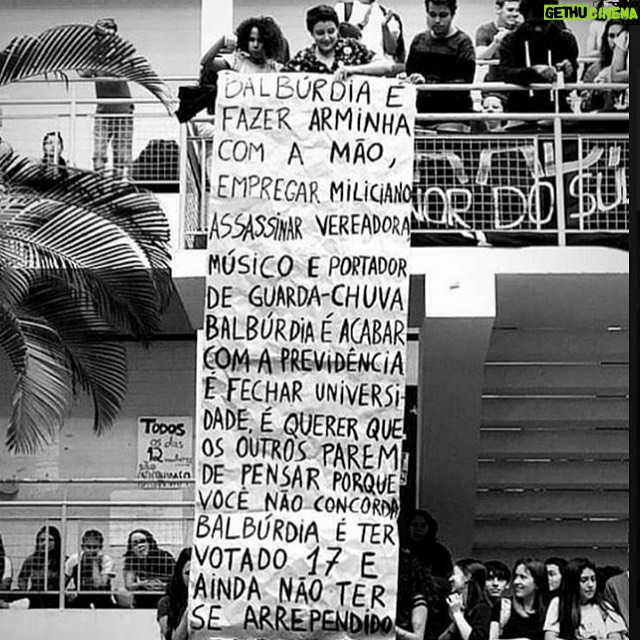 GETHU CINEMA
BALBÚRDIA É
FAZER ARMINHA
COM A MÃO,
EMPREGAR MILICIANO
ASSASSINAR VEREADORA
MÚSICO E PORTADOR
DE GUARDA-CHUVA
BALBÚRDIA É ACABAR
COM A PREVIDÊNCIA
E FECHAR UNIVERSI-
DADE, É QUERER QUE
OS OUTROS PAREM
DE PENSAR PORQUE
VOCÊ NÃO CONCORDA
BALBÚRDIA É TER
VOTADO 17 E
AINDA NÃO TER
SE ARREPENDIDO
NOR DO SU
TODOS
OS DIAS
12
SÃO